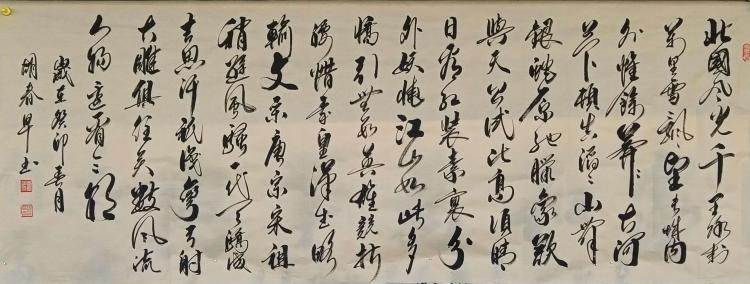 北國風光千里冰封
萬里雪飄望長城內
外惟餘莽莽大河
上下頓失滔滔山舞
銀蛇原馳臘象欲
與天公試比高須晴
日看紅裝素裹分
外妖嬈江山如此多
嬌引無數英雄競折
腰惜秦皇漢武略
輸文采唐宗宋祖
稍遜風騷一代天驕成
吉思汗祇識彎弓射
大雕俱往矣數風流
人物還看今朝
歲在癸卯春月
胡春早书